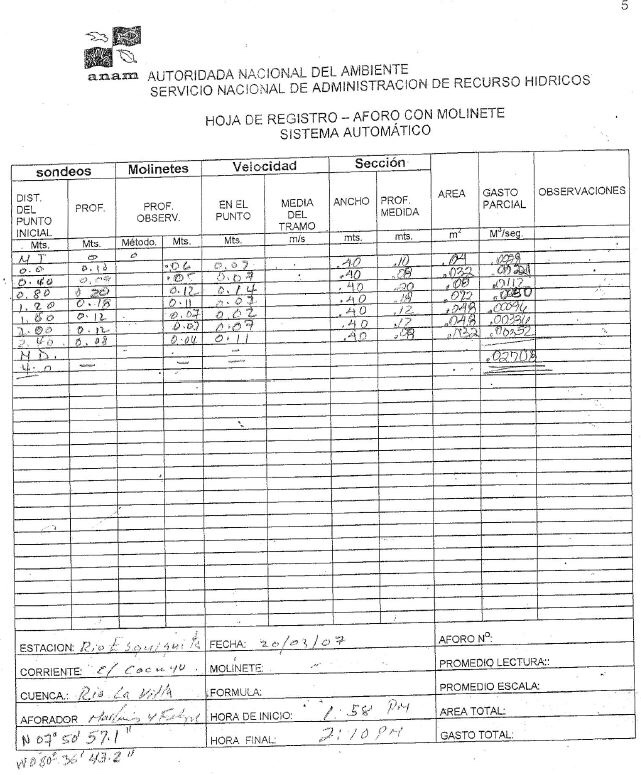 5
anam
AUTORIDADA NACIONAL DEL AMBIENTE
SERVICIO NACIONAL DE ADMINISTRACION DE RECURSO HIDRICOS
HOJA DE REGISTRO – AFORO CON MOLINETE
SISTEMA AUTOMÁTICO
sondeos Molinetes Velocidad Sección AREA GASTO PARCIAL OBSERVACIONES
DIST. DEL PUNTO INICIAL PROF. PROF. OBSERV. EN EL PUNTO MEDIA DEL TRAMO ANCHO PROF. MEDIDA
Mts. Mts. Método. Mts. Mts. m/s mts. mts. m² M³/seg.
M I 0 0
0.0 0.10 .06 0.07 .40 .10 .04
0.40 .05 0.07 .40 .08 .032
0.80 .20 0.12 0.14 .40 .20 .08 .0112
1.20 0.18 0.11 0.07 .40 .18 .072
1.60 0.12 0.07 0.07 .40 .12 .048 .00336
2.00 0.12 0.07 0.07 .40 .12 .048 .00336
2.40 0.08 0.04 0.11 .40 .08 .032 .00352
M D. — — .02708
4.0 — —
ESTACION: Rio FECHA: 20/03/07 AFORO Nº:
CORRIENTE: El Cocuyo. MOLÍNETE: PROMEDIO LECTURA::
CUENCA.: Rio La Villa FORMULA: PROMEDIO ESCALA:
AFORADOR y HORA DE INICIO: 1:58 PM AREA TOTAL:
N 07° 50' 57.1" HORA FINAL: 2:10 PM GASTO TOTAL:
W 080° 36' 43.2"